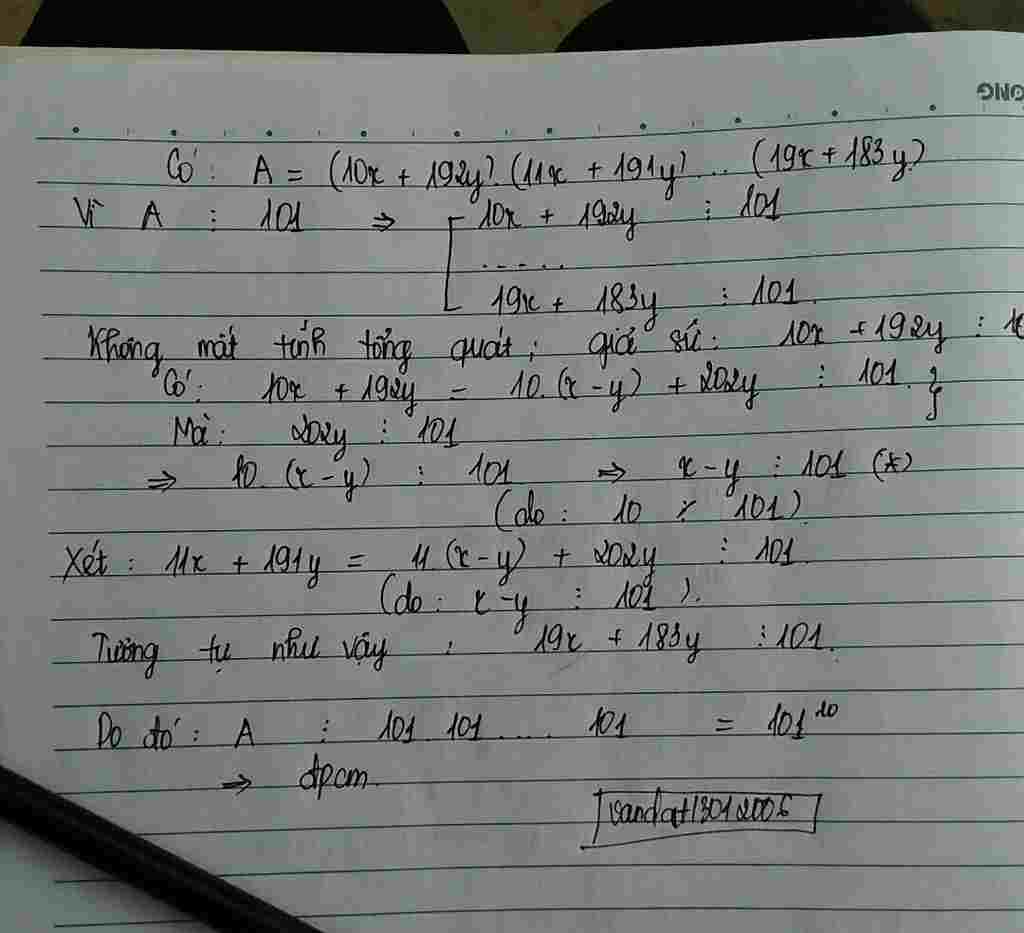 ONG
Có: A = (10x + 192y).(11x + 191y)...(19x + 183y)
Vì A ⋮ 101 ⇒ [ 10x + 192y ⋮ 101
.....
19x + 183y ⋮ 101.
Không mất tính tổng quát; giả sử: 10x + 192y ⋮
Có: 10x + 192y = 10.(x-y) + 202y ⋮ 101. }
Mà: 202y ⋮ 101
⇒ 10.(x-y) ⋮ 101 ⇒ x-y ⋮ 101 (*)
(do: 10 ⋮̸ 101)
Xét: 11x + 191y = 11.(x-y) + 202y ⋮ 101
(do: x-y ⋮ 101).
Tương tự như vậy: 19x + 183y ⋮ 101.
Do đó: A ⋮ 101.101....101 = 101¹⁰
⇒ đpcm.
vandat13012006